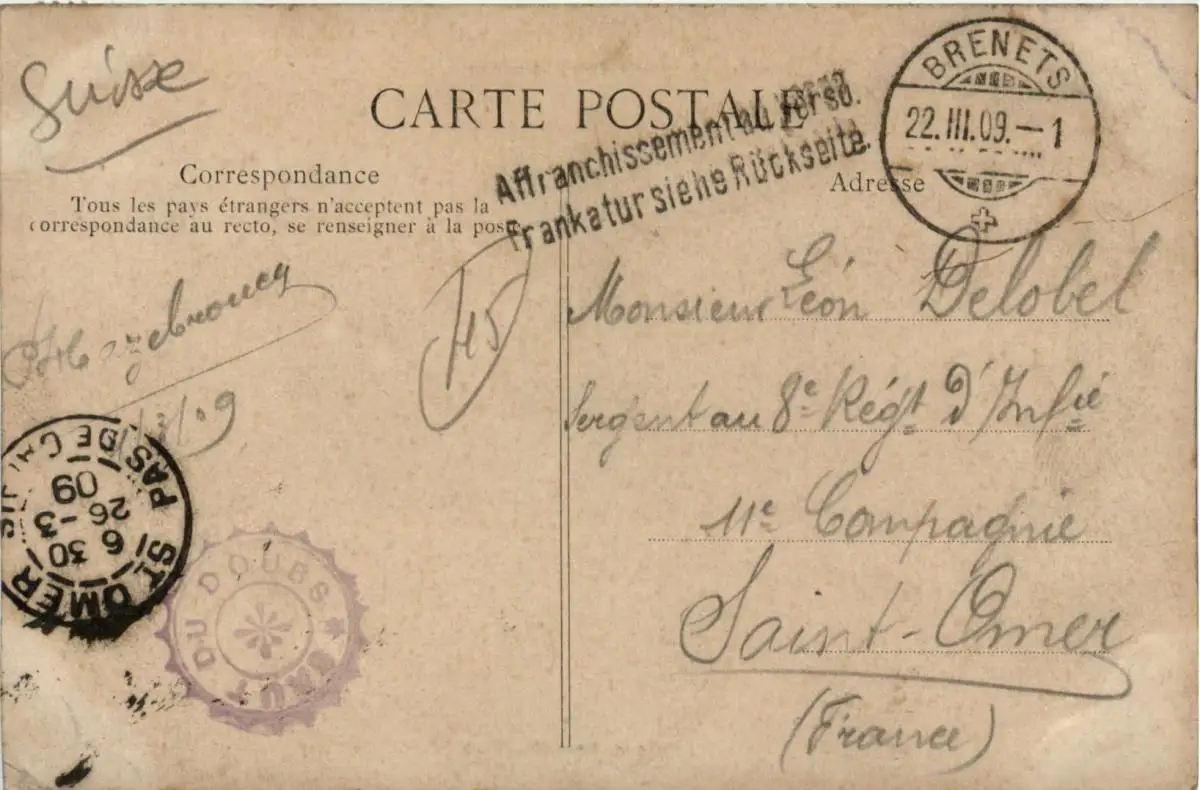 Suisse
CARTE POSTALE
Affranchissement au verso.
Frankatur siehe Rückseite.
BRENETS
22.III.09.-1
Correspondance
Tous les pays étrangers n'acceptent pas la
correspondance au recto, se renseigner à la poste
Adresse
Hazebroucq
3/09
45
Monsieur Léon Delobel
Sergent au 8e Régt d'Infie
11e Compagnie
Saint-Omer
(France)
ST OMER
PAS DE CALAIS
6 30
26 -3
09
SAUT DU DOUBS